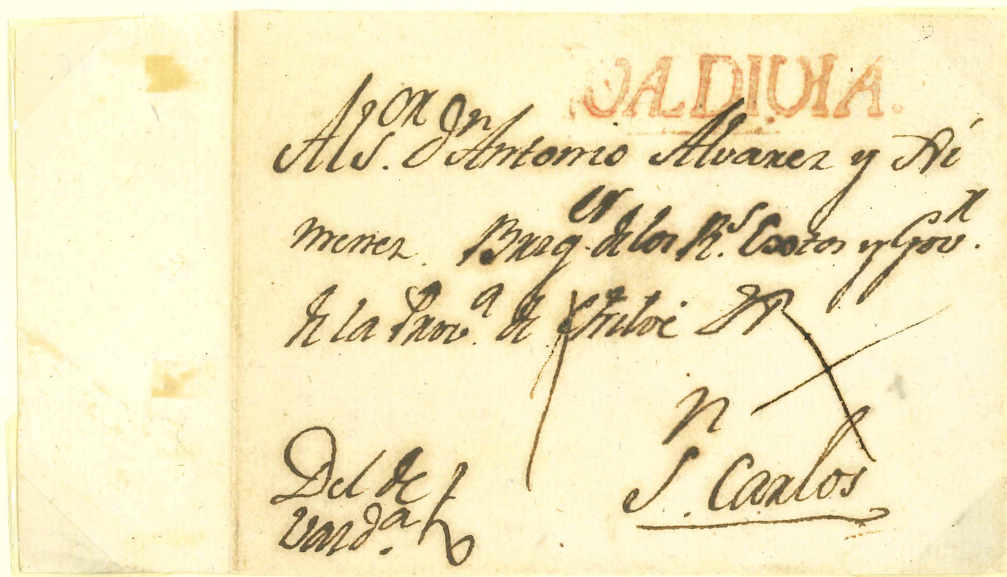 VALDIVIA.
Al S.or Dn Antonio Alvarez y Xi
menez. Briger de los Rs. Exctos y Govr.
de la Prova. de Chiloe &
n
S. Carlos
Del de
Vald.a